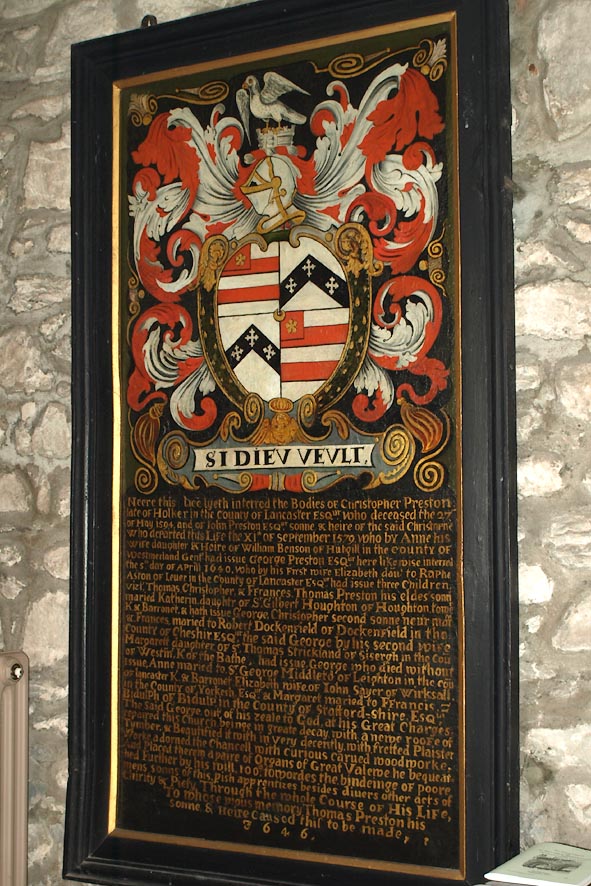 SI DIEV VEVLT.
Neere this lyeth interred the Bodies of Christopher Preston
late of Holker in the County of Lancaster Esqr. who deceased the 27
of May 1594. and of John Preston Esqr. sonne & heire of the said Christopher
Who departed this Life the XIth of September 1579. who by Anne his
wife daughter & Heire of William Benson of Hugill in the County of
Westmerland Gent: had issue George Preston Esqr. here likewise interred
the 5th day of April 1640. who by his First wife Elizabeth daur to Raphe
Aston of Leuer in the County of Lancaster Esqr. had issue three Children
viz: Thomas Christopher, & Frances. Thomas Preston his eldest sonne
maried Katherin daughter of Sr. Gilbert Houghton of Houghton towr
Kt. & Barronet. & hath issue George Christopher second sonne
& Frances maried to Robert Dockenfield of Dockenfield in the
County of Cheshir Esqr. the said George by his second wife
Margarett daughter of Sr. Thomas Strickland of Sisergh in the Cou
of Westm. Kt. of the Bathe, had issue George who died without
Issue, Anne maried to Sr. George Midlleto of Leighton in the con
of lancaster Kt. & Barronet Elizabeth wife of John Sayer of Wirksall
in the County of Yorkesh. Esqr. & Margaret maried to Francis
Bidulph of Bidulp in the County of Stafford-shire Esqr.
The Said George out of his zeale to God, at his Great Charges
repaired this Church being in great decay with a newe roofe of
Tymber, & Beautified it with in very decently, with fretted Plaister
Worke, adorned the Chancell with curious carued wood worke,
And Placed therein a paire of Organs of Great Valewe he bequeat
hed Further by his will 100l towordes the bindeinge of poore
mens sonns of this pish apprentizes besides diuers other acts of
Charity & Piety, Through the whole Course of His Life,
To whose pious memory Thomas Preston his
sonne & Heire Caused this to be made,
3646.